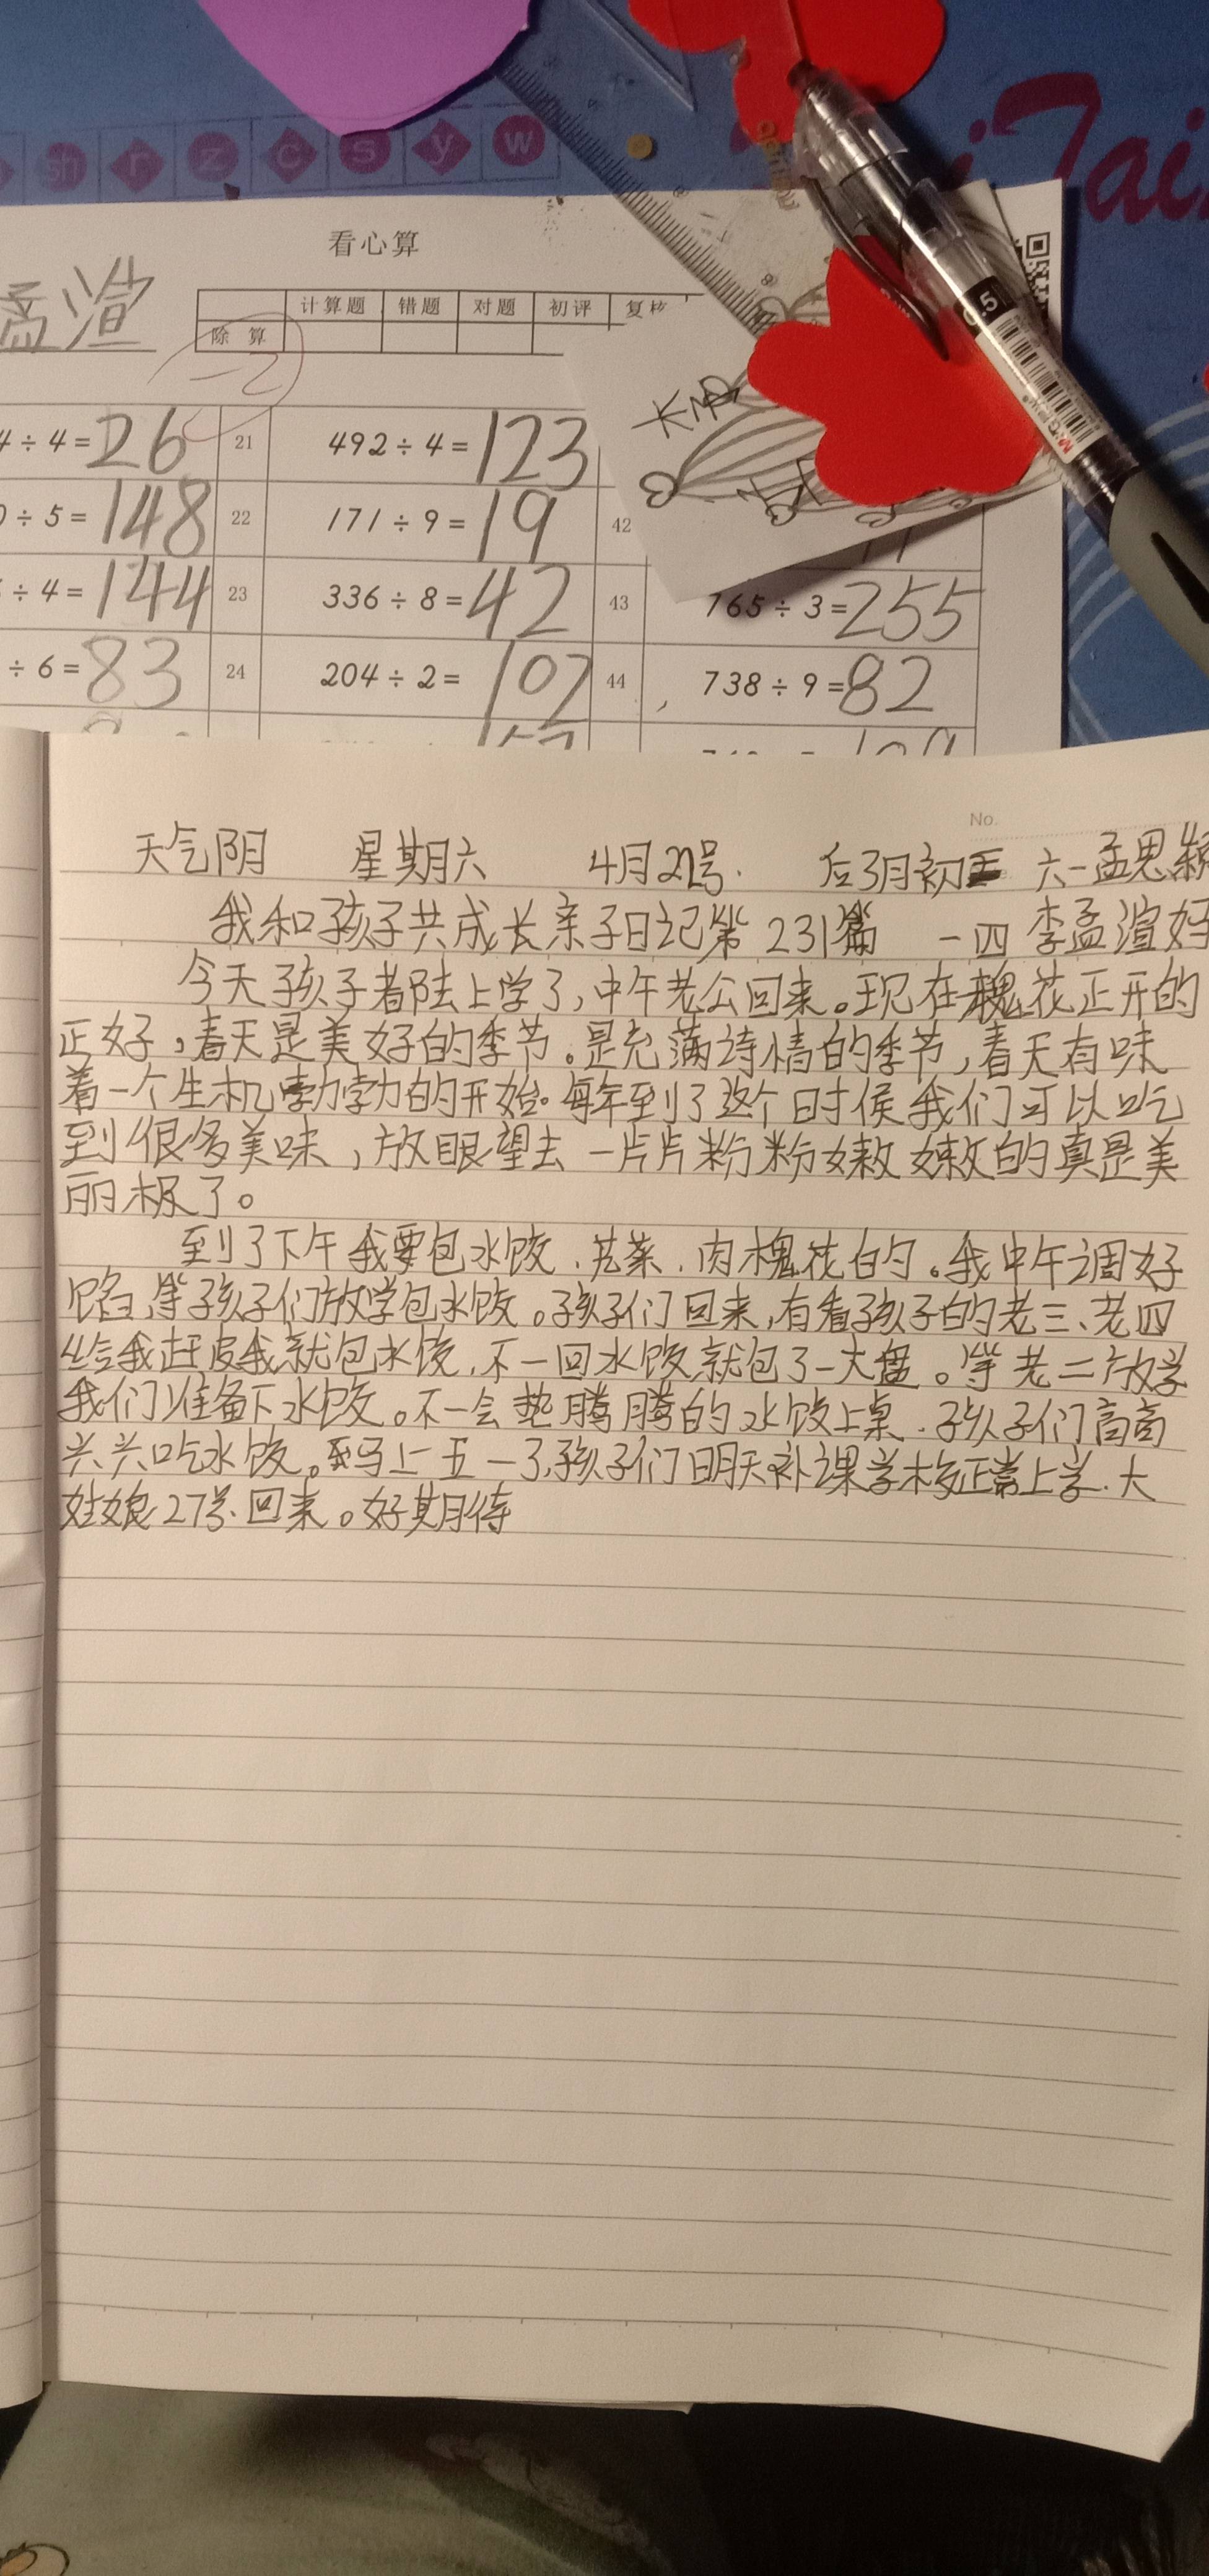 sh r z c s y w
iTai
看心算
孟渲
计算题 错题 对题 初评 复核
除 算
-2
4÷4=26 21 492÷4=123
0÷5=148 22 171÷9=19 42
÷4=144 23 336÷8=42 43 765÷3=255
÷6=83 24 204÷2=102 44 738÷9=82
0.5
M&G
No.
天气阴 星期六 4月22号. 后3月初 六一孟思颖
我和孩子共成长亲子日记第231篇 一四李孟渲妈
今天孩子都陆上学了,中午老公回来。现在槐花正开的
正好,春天是美好的季节。是充满诗情的季节,春天有味
着一个生机勃勃的开始。每年到了这个时候我们可以吃
到很多美味,放眼望去一片片粉粉嫩嫩的真是美
丽极了。
到了下午我要包水饺.芫菜.肉槐花的。我中午调好
馅,等孩子们放学包水饺。孩子们回来,有看孩子的老三、老四
给我赶皮我就包水饺,不一回水饺就包了一大盘。等老二放学
我们准备下水饺。不一会热腾腾的水饺上桌.孩子们高高
兴兴吃水饺。马上五一了,孩子们明天补课学校正常上学.大
姑娘27号.回来。好期待